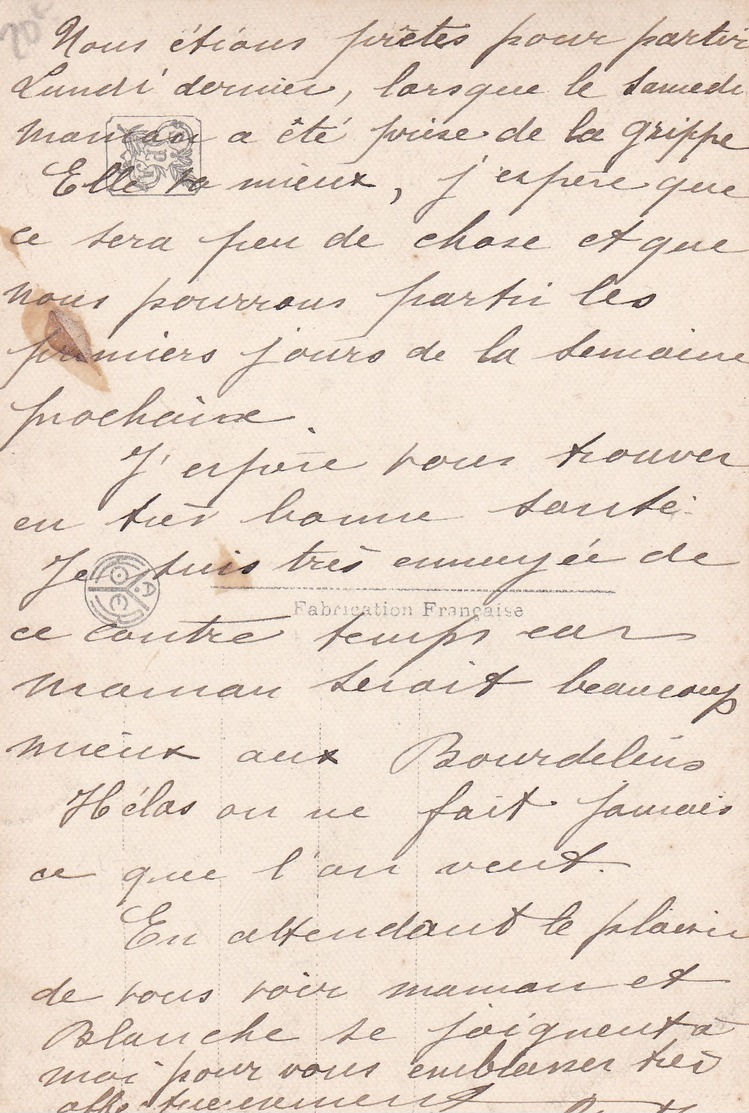 Nous étions prêtes pour partir
Lundi dernier, lorsque le Samedi
maman a été prise de la grippe
Elle va mieux, j'espère que
ce sera peu de chose et que
nous pourrons partir les
premiers jours de la semaine
prochaine
J'espère vous trouver
en très bonne santé.
Je suis très ennuyée de
Fabrication Française
ce contre temps car
maman serait beaucoup
mieux aux Bourdelins
Hélas on ne fait jamais
ce que l'on veut.
En attendant le plaisir
de vous voir maman et
Blanche se joignent à
moi pour vous embrasser très
affectueusement